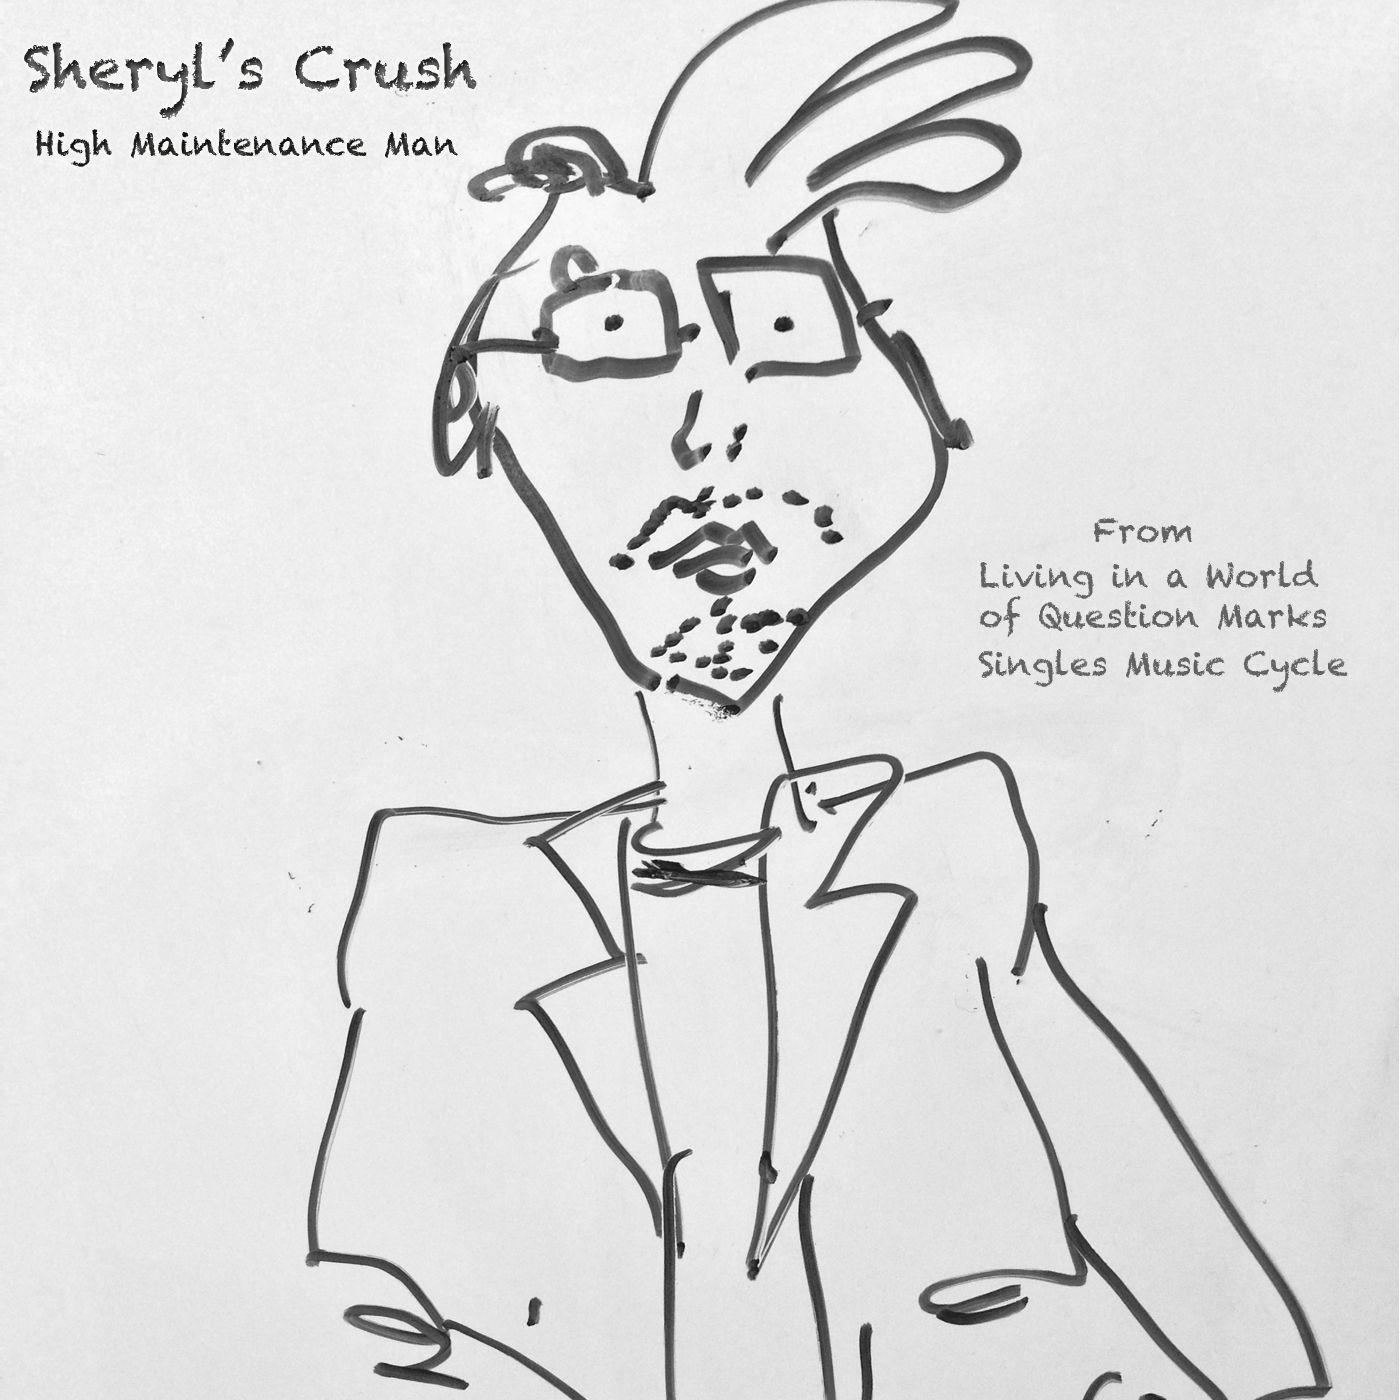 Sheryl's Crush
High Maintenance Man
From
Living in a World
of Question Marks
Singles Music Cycle